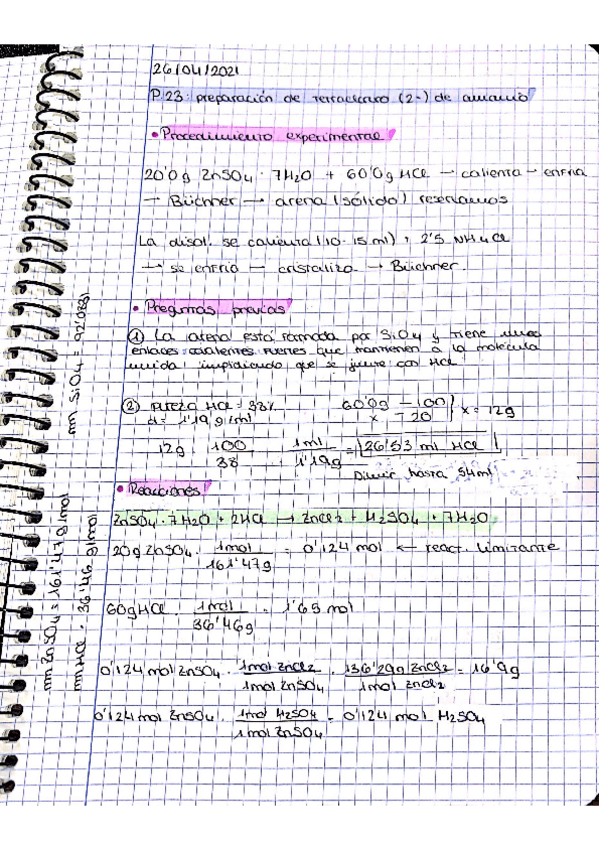 26/04/2021
P.23: preparación de tetracloro (2-) de amonio
• Procedimiento experimental
20'0g ZnSO4 · 7H2O + 60'0g HCl → calienta → enfría
→ Büchner → arena (sólido) reservamos
La disol. se calienta (10-15 ml) + 2'5 NH4Cl
→ se enfría → cristaliza → Büchner.
• Preguntas previas
① La arena está formada por SiO4 y tiene unos
enlaces covalentes fuertes que mantienen a la molécula
unida impidiendo que se junte con HCl
② pureza HCl = 38% 60'0g — 100 } x = 12g
d = 1'19 g/ml x — 20
12g 100/38 1ml/1'19g = 26'53 ml HCl
Diluir hasta 54ml
• Reacciones
ZnSO4 · 7H2O + 2HCl → ZnCl2 + H2SO4 + 7H2O
20g ZnSO4 · 1mol/161'47g = 0'124 mol ← react. limitante
60g HCl · 1mol/36'46g = 1'65 mol
0'124 mol ZnSO4 · 1mol ZnCl2/1mol ZnSO4 · 136'29g ZnCl2/1mol ZnCl2 = 16'9g
0'124 mol ZnSO4 · 1mol H2SO4/1mol ZnSO4 = 0'124 mol H2SO4
mm SiO4 = 92'0831
mm ZnSO4 = 161'47 g/mol
mm HCl = 36'46 g/mol